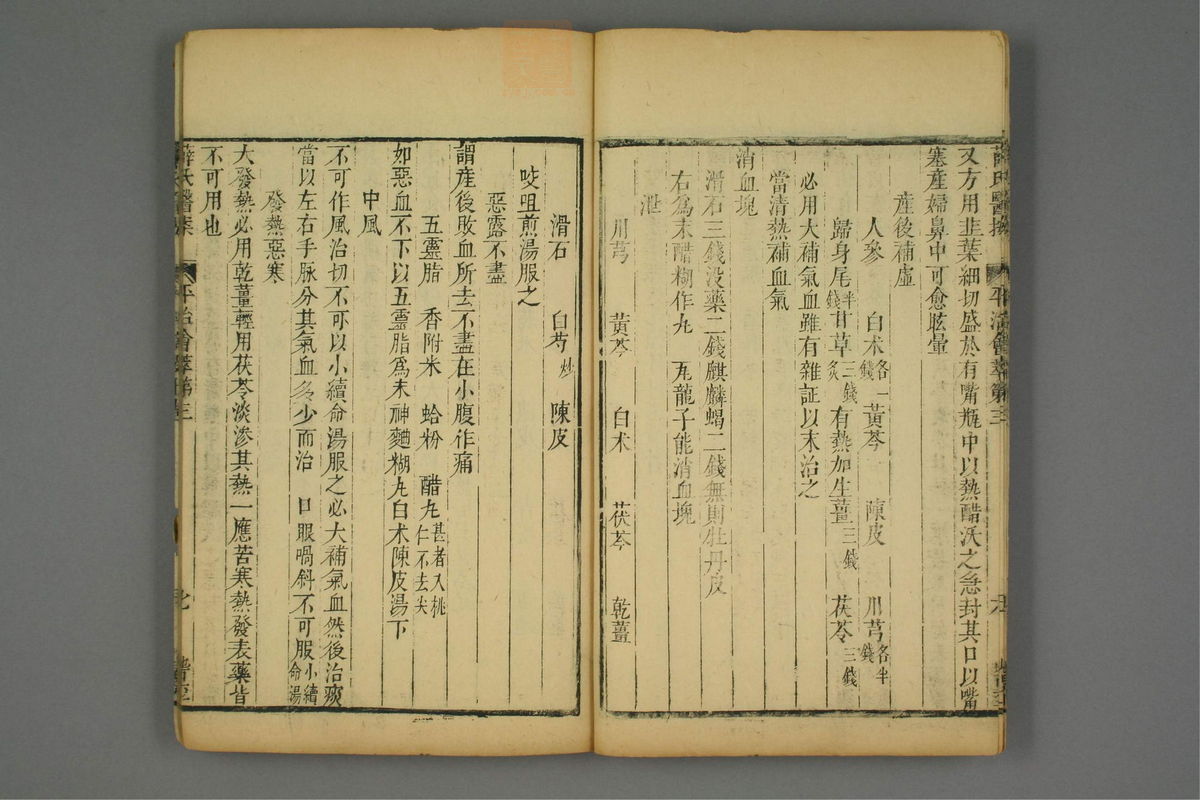 又方用韭葉細切盛於有嘴瓶中以熱醋沃之急封其口以嘴
塞產婦鼻中可愈眩暈
產後補虛
人參 白术各一錢 黃芩 陳皮 川芎各半錢
歸身尾半錢 甘草三錢炙 有熱加生薑三錢 茯苓三錢
必用大補氣血雖有雜証以末治之
當清熱補血氣
消血塊
滑石三錢没藥二錢麒麟蝎二錢無則牡丹皮
右爲末醋糊作丸 瓦龍子能消血塊
泄
川芎 黃芩 白术 茯苓 乾薑
滑石 白芍炒 陳皮
㕮咀煎湯服之
惡露不盡
謂產後敗血所去不盡在小腹作痛
五靈脂 香附米 蛤粉 醋丸甚者入桃仁不去尖
如惡血不下以五靈脂爲末神麯糊丸白术陳皮湯下
中風
不可作風治切不可以小續命湯服之必大補氣血然後治痰
當以左右手脉分其氣血多少而治 口眼喎斜不可服小續命湯
發熱惡寒
大發熱必用乾薑輕用茯苓淡滲其熱一應苦寒熱發表藥皆
不可用也
薛氏醫案 平治會萃第三